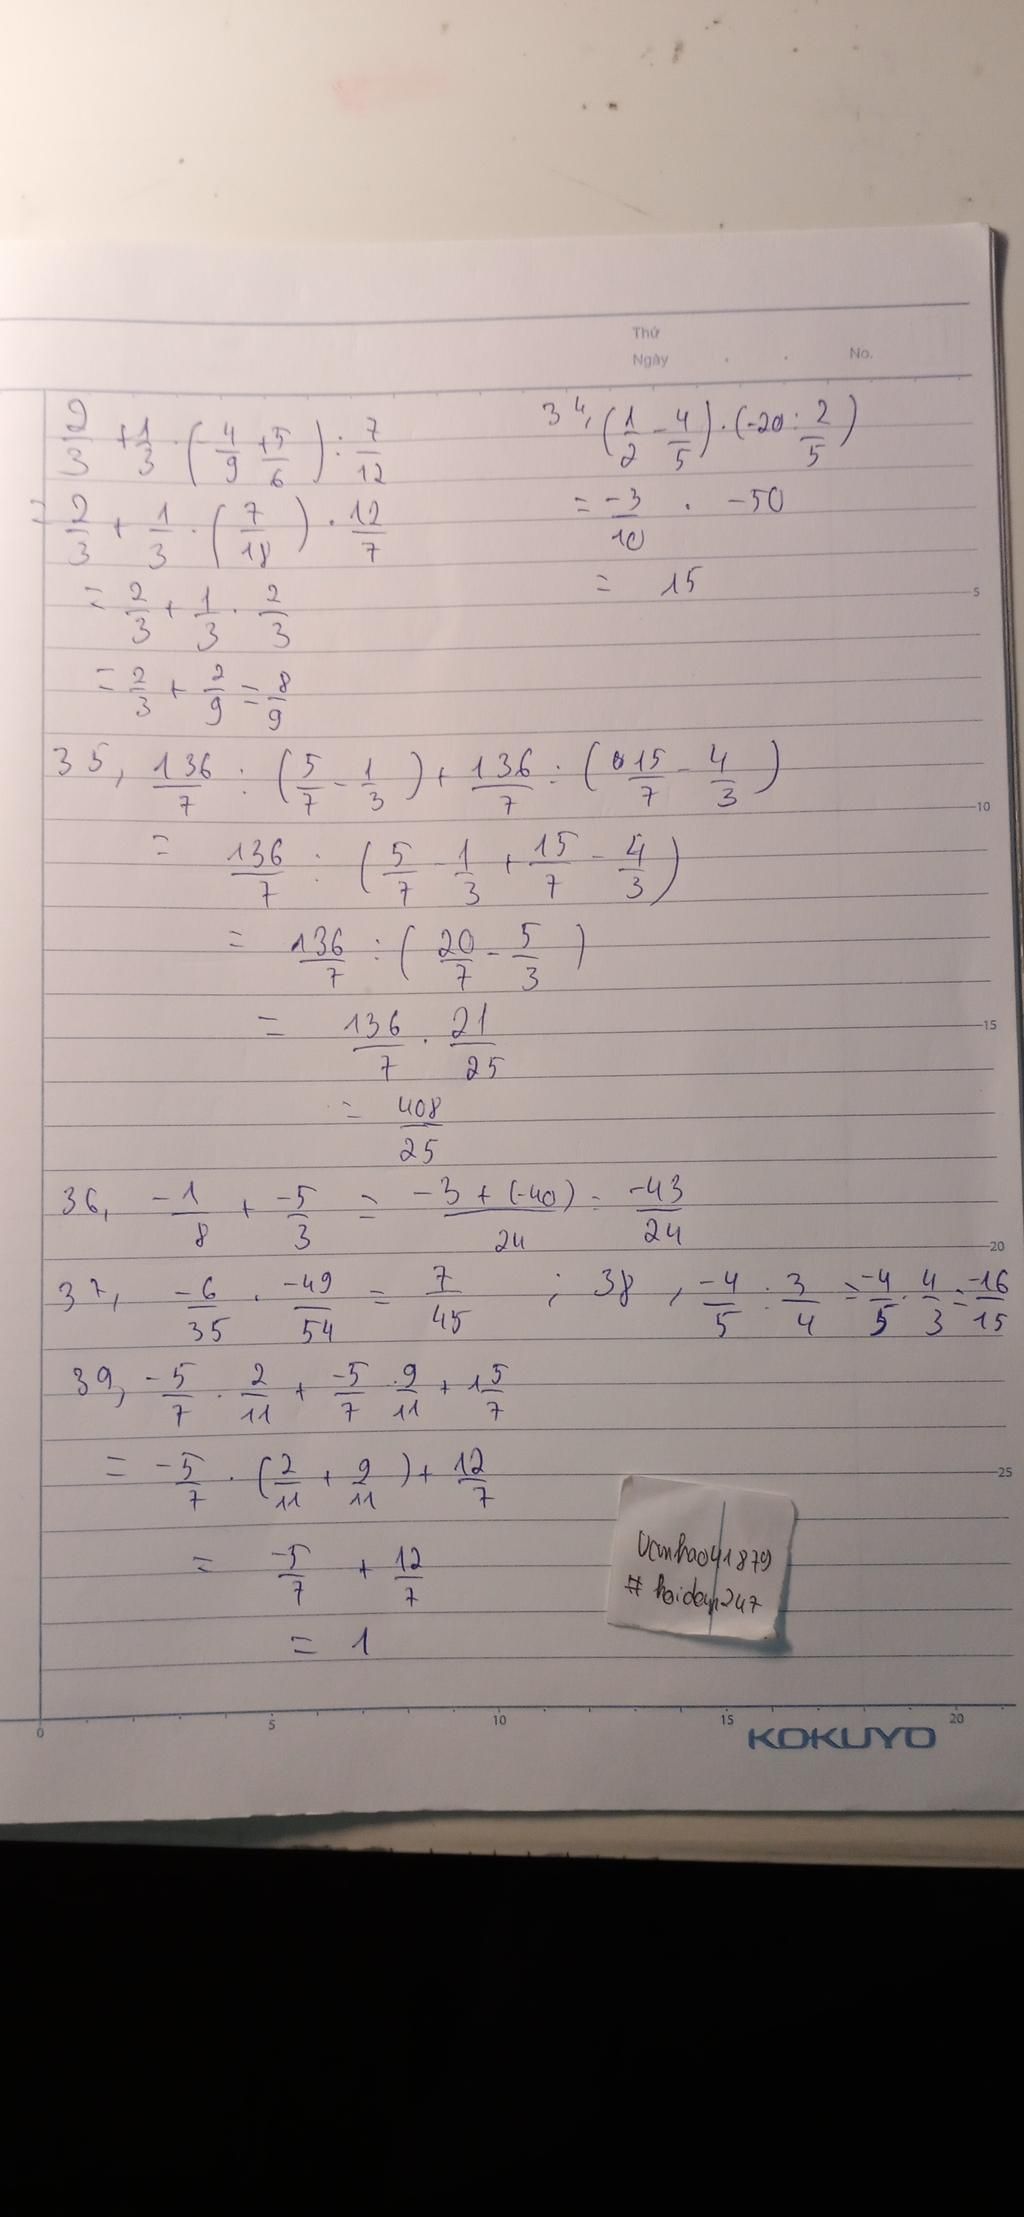 Thứ
Ngày . . No.
2/3 + 1/3 . (-4/9 + 5/6) : 7/12
= 2/3 + 1/3 . (7/18) . 12/7
= 2/3 + 1/3 . 2/3
= 2/3 + 2/9 = 8/9
34, (1/2 - 4/5) . (-20 : 2/5)
= -3/10 . -50
= 15
35, 136/7 : (5/7 - 1/3) + 136/7 : (15/7 - 4/3)
= 136/7 : (5/7 - 1/3 + 15/7 - 4/3)
= 136/7 : (20/7 - 5/3)
= 136/7 . 21/25
= 408/25
36, -1/8 + -5/3 = -3 + (-40)/24 = -43/24
37, -6/35 . -49/54 = 7/45 ; 38, -4/5 : 3/4 = -4/5 . 4/3 = -16/15
39, -5/7 . 2/11 + -5/7 . 9/11 + 1 5/7
= -5/7 . (2/11 + 9/11) + 12/7
= -5/7 + 12/7
= 1
Vanhao41879
# hoidap247
5
10
15
20
25
0 5 10 15 20
KOKUYO